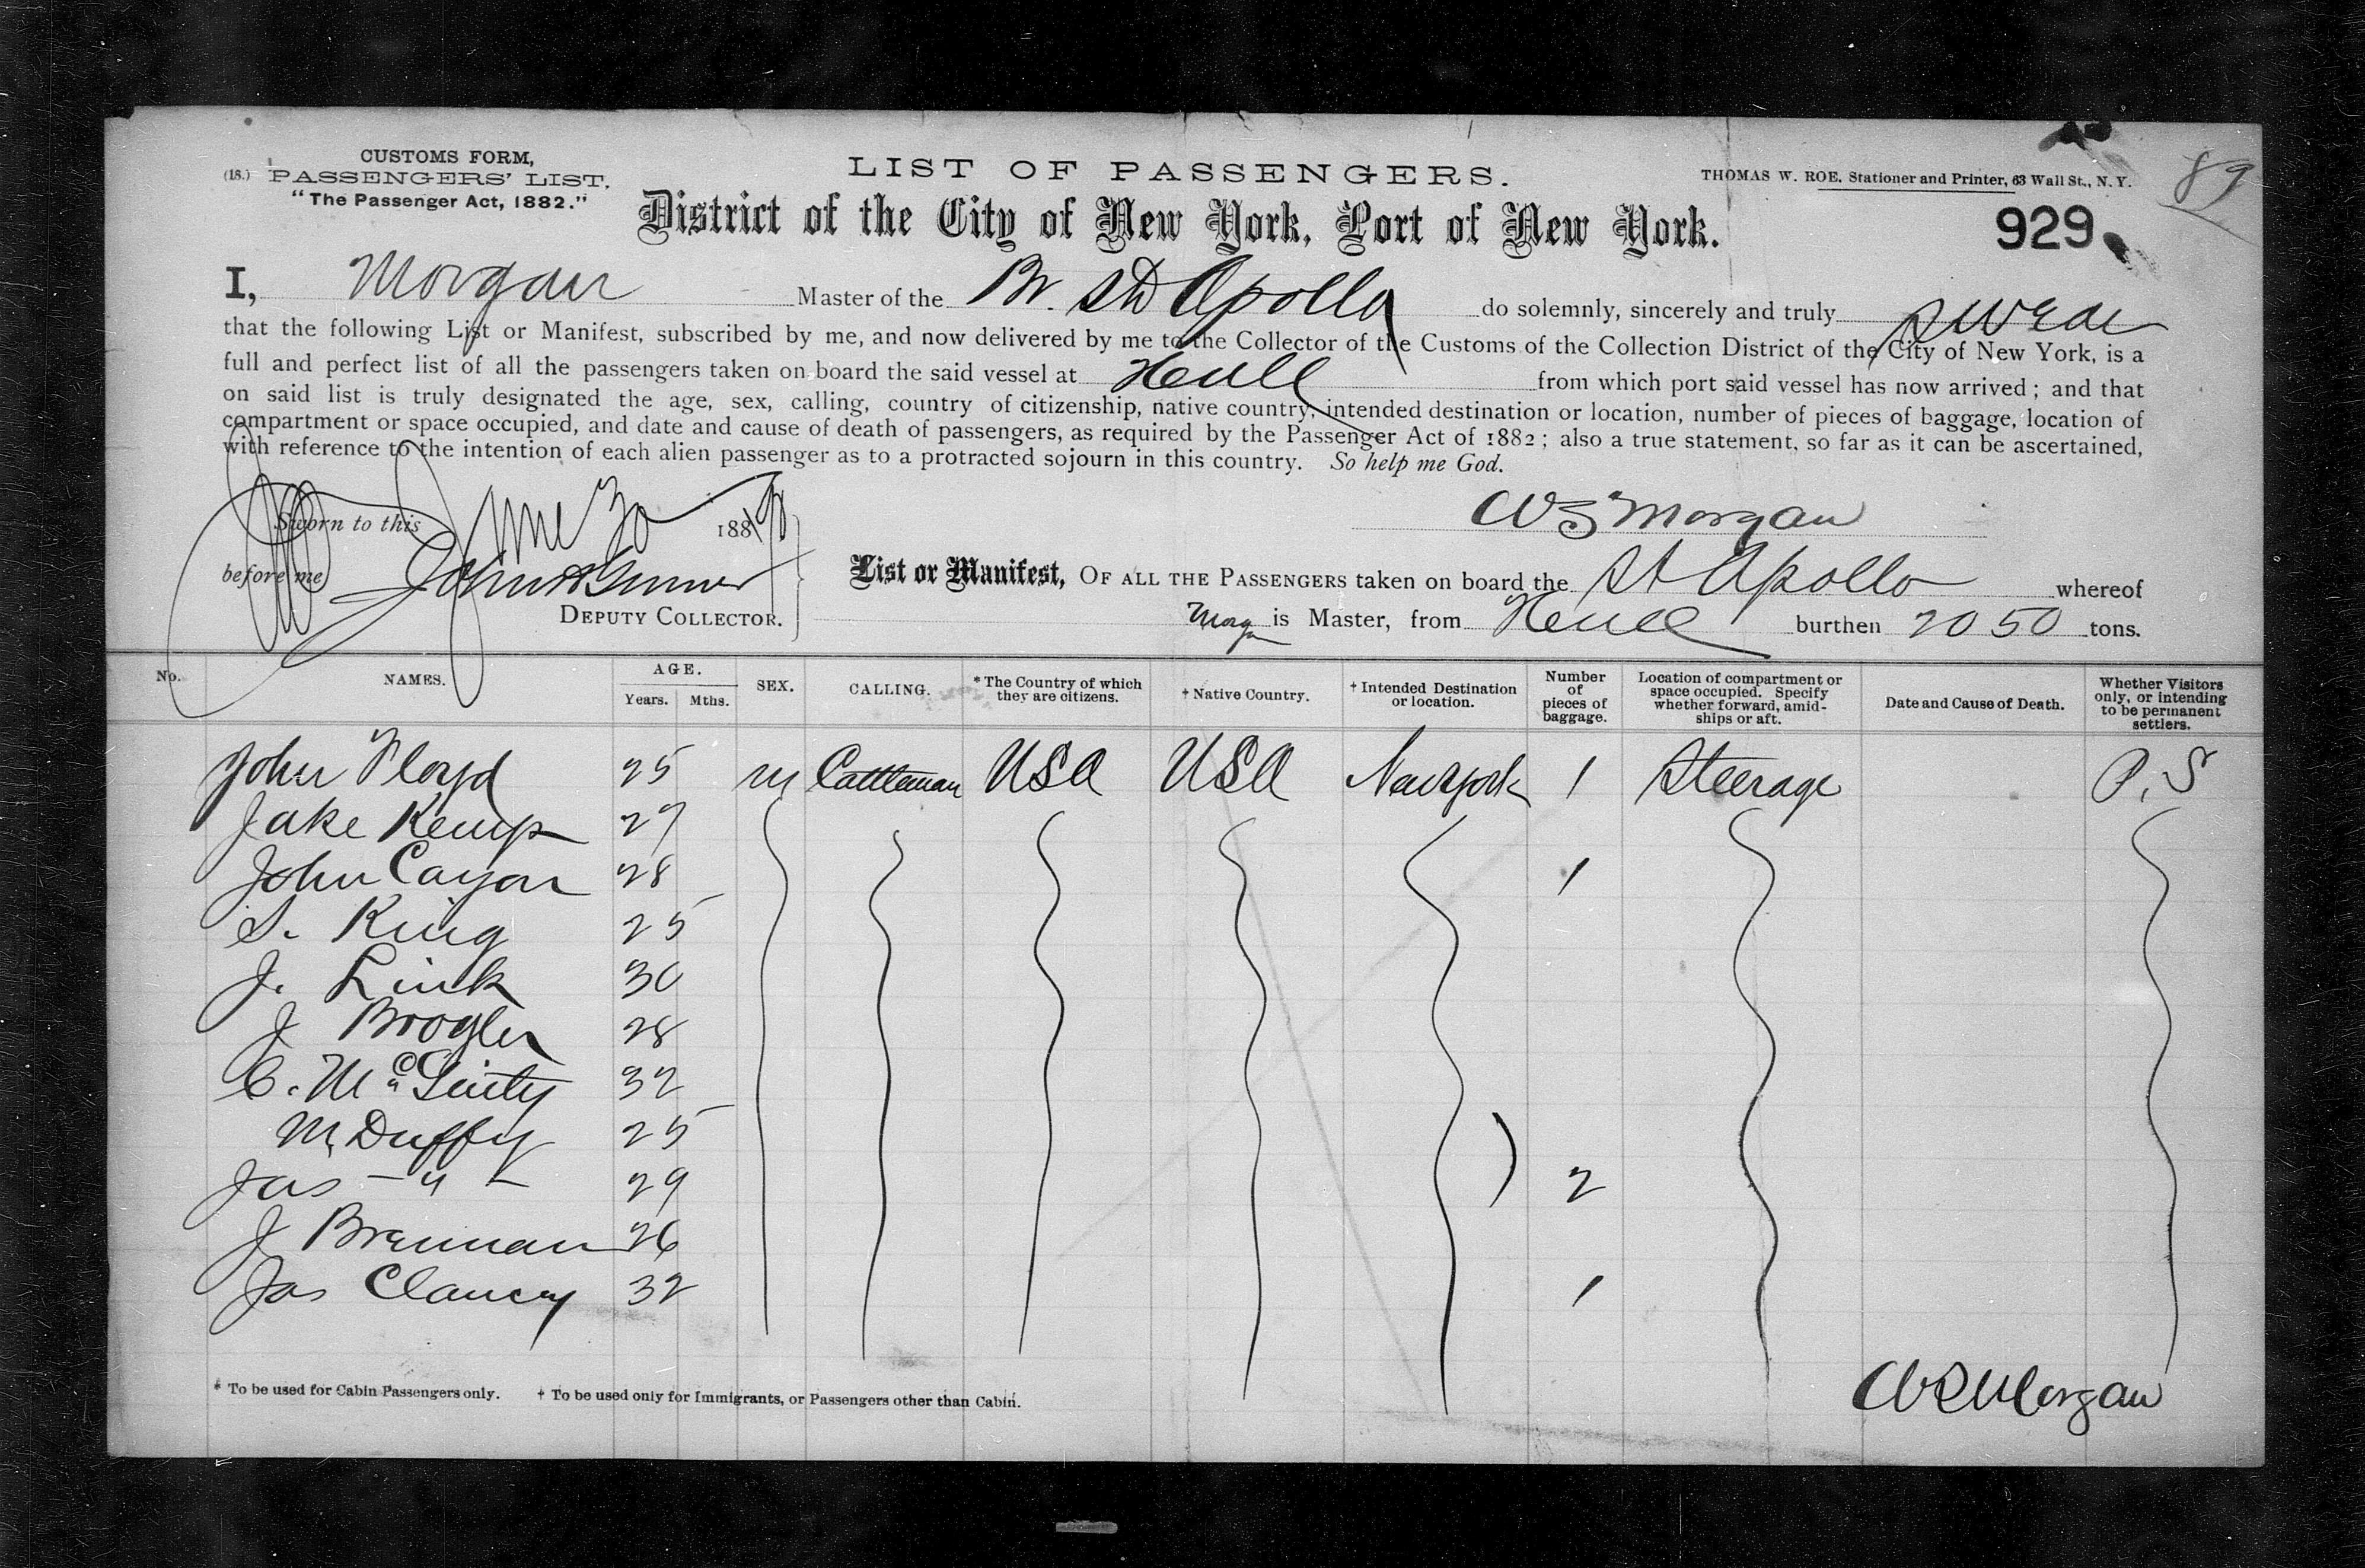 CUSTOMS FORM,
(18.) PASSENGERS' LIST.
"The Passenger Act, 1882."
LIST OF PASSENGERS.
District of the City of New York, Port of New York.
THOMAS W. ROE, Stationer and Printer, 63 Wall St., N. Y.
89
929
I, Morgan Master of the Br. Apollo do solemnly, sincerely and truly swear
that the following List or Manifest, subscribed by me, and now delivered by me to the Collector of the Customs of the Collection District of the City of New York, is a
full and perfect list of all the passengers taken on board the said vessel at Hull from which port said vessel has now arrived; and that
on said list is truly designated the age, sex, calling, country of citizenship, native country, intended destination or location, number of pieces of baggage, location of
compartment or space occupied, and date and cause of death of passengers, as required by the Passenger Act of 1882; also a true statement, so far as it can be ascertained,
with reference to the intention of each alien passenger as to a protracted sojourn in this country. So help me God.
WS Morgan
Sworn to this 188
before me
DEPUTY COLLECTOR.
List or Manifest, OF ALL THE PASSENGERS taken on board the St Apollo whereof
Morgan is Master, from Hull burthen 2050 tons.
No. NAMES. AGE. Years. Mths. SEX. CALLING. * The Country of which they are citizens. † Native Country. † Intended Destination or location. Number of pieces of baggage. Location of compartment or space occupied. Specify whether forward, amidships or aft. Date and Cause of Death. Whether Visitors only, or intending to be permanent settlers.
John Floyd 25 m Cattleman USA USA New York 1 Steerage P. S
Jake Kemp 27
John Cayon 28 1
S. King 25
J. Link 30
J Brogler 28
C. McGinty 32
M Duffy 25
Jas - " - 29 2
J Brennan 26
Jas Clancy 32 1
* To be used for Cabin Passengers only. † To be used only for Immigrants, or Passengers other than Cabin.
WS Morgan